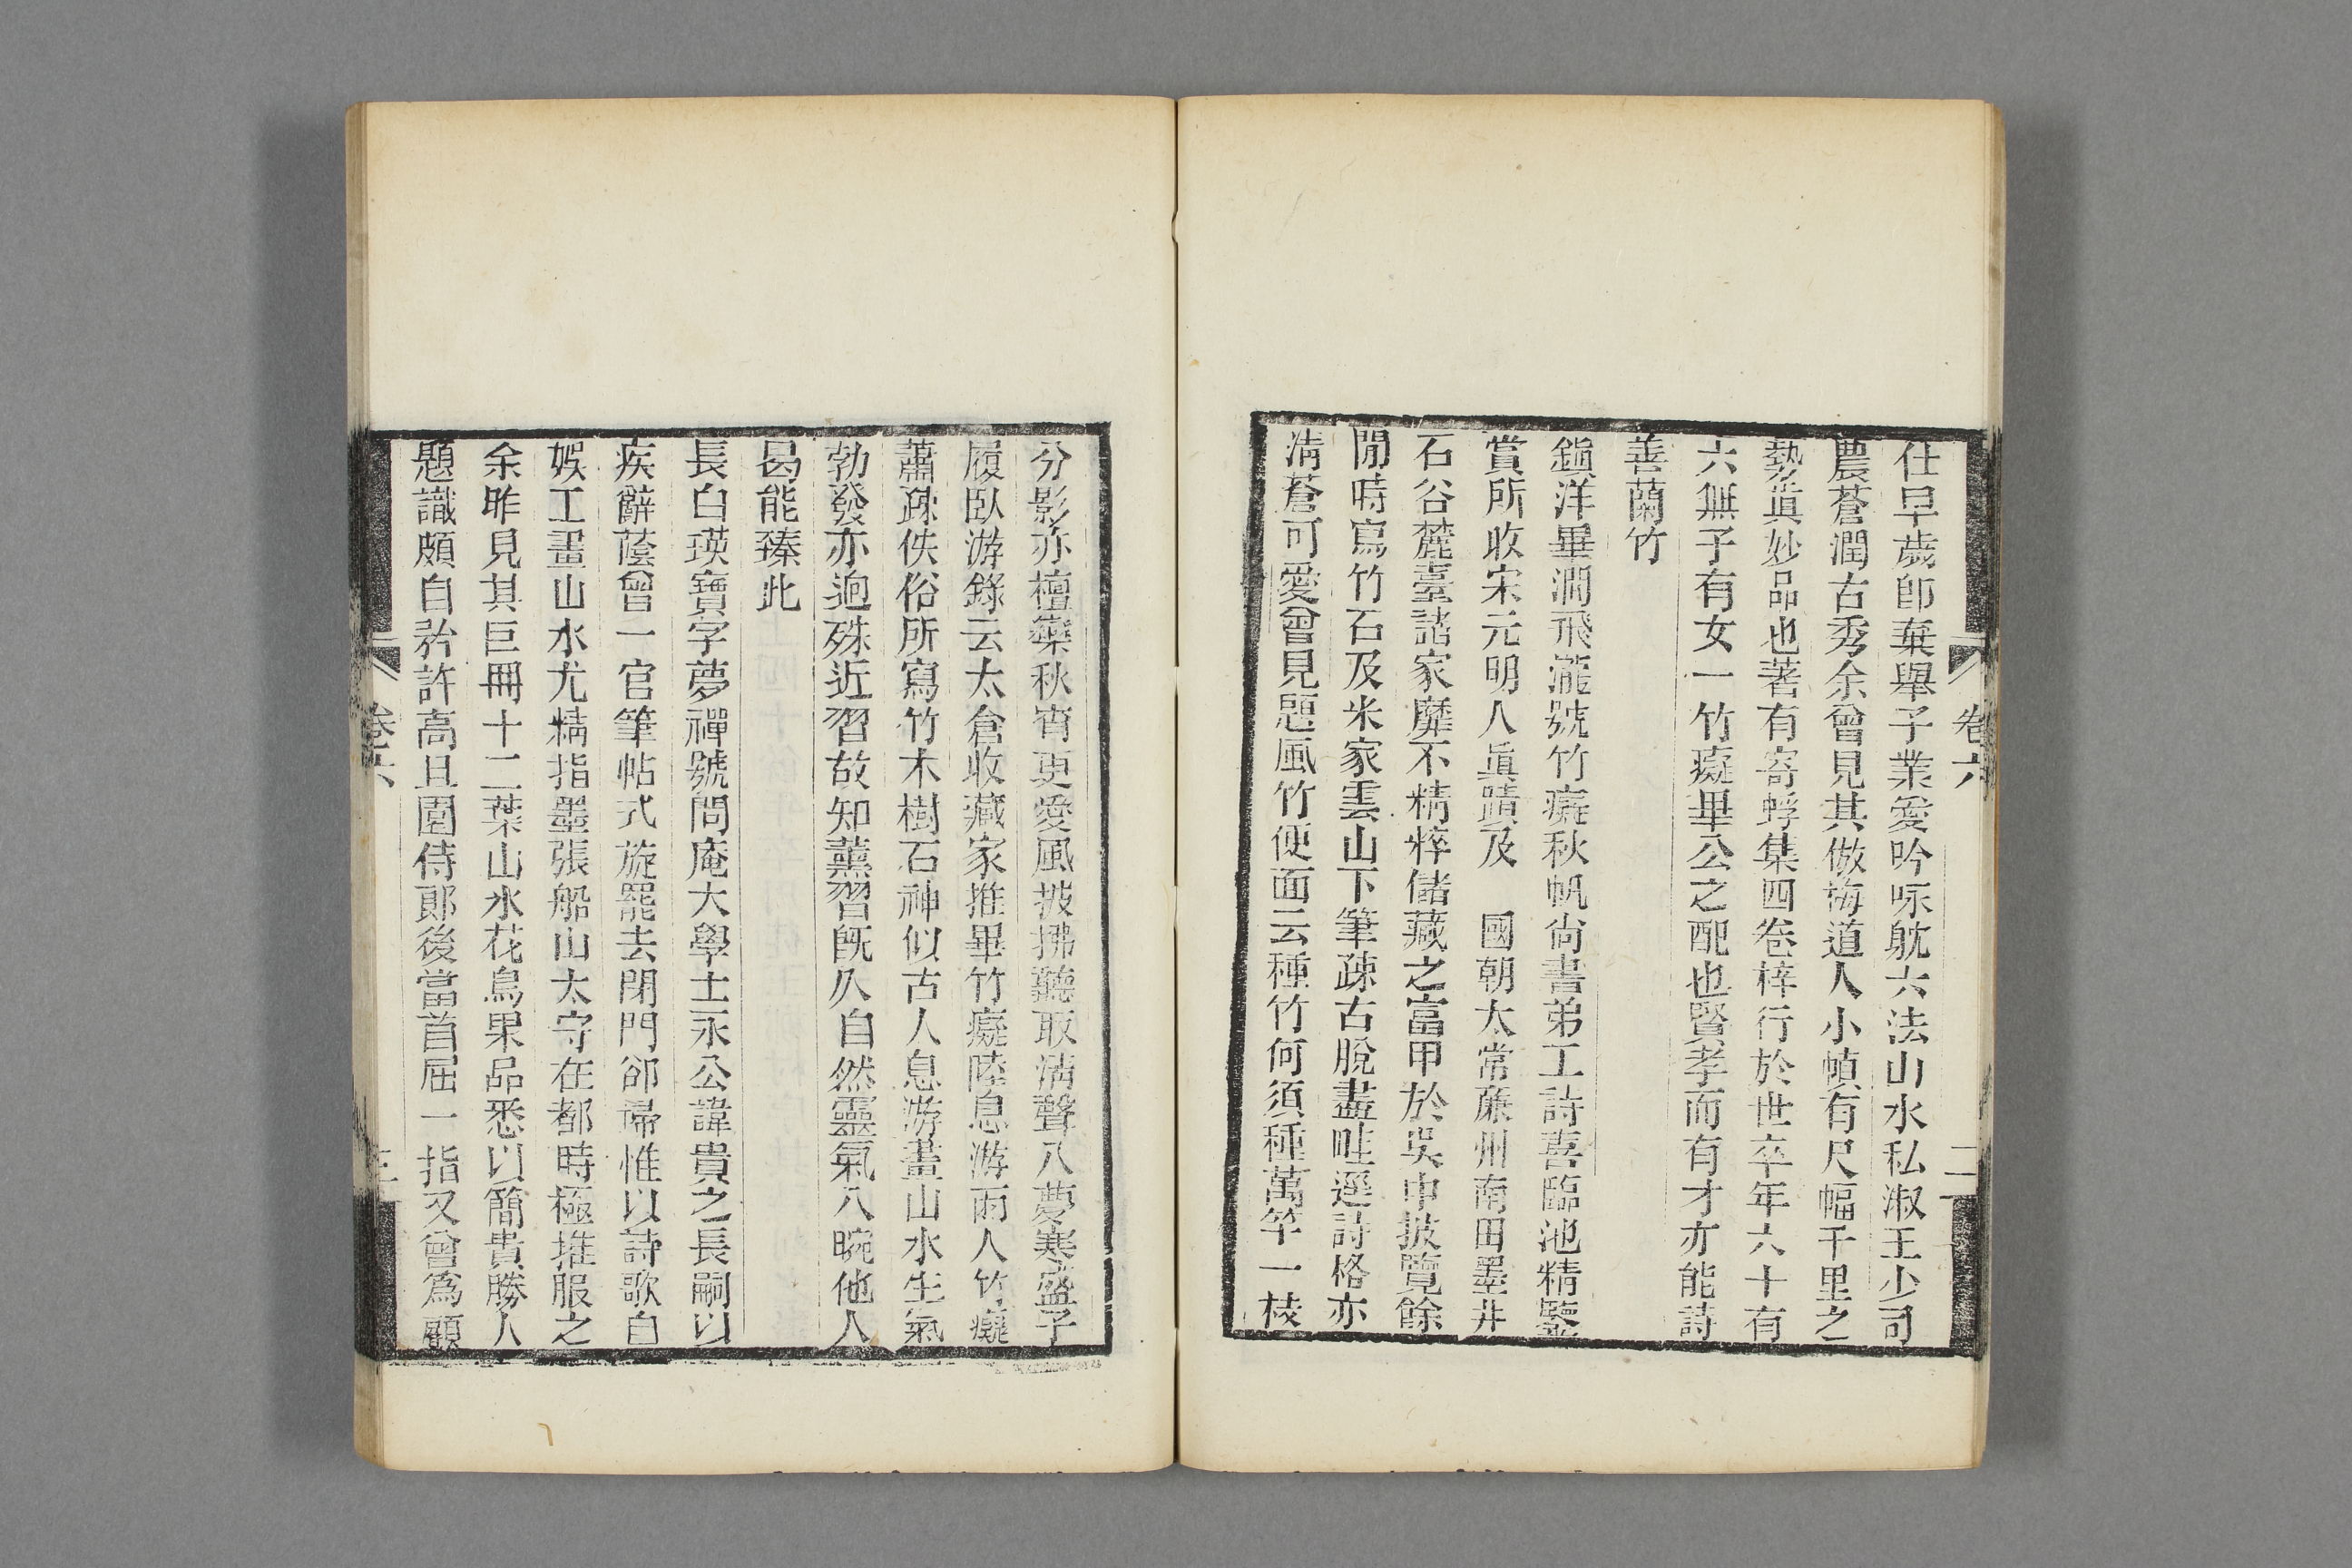 仕早歲卽棄舉子業愛吟咏躭六法山水私淑王少司
農蒼潤古秀余曾見其倣梅道人小幀有尺幅千里之
勢眞妙品也著有寄蜉集四卷梓行於世卒年六十有
六無子有女一竹癡畢公之配也賢孝而有才亦能詩
善蘭竹
鎭洋畢澗飛瀧號竹癡秋帆尙書弟工詩喜臨池精鑒
賞所收宋元明人眞蹟及　國朝太常廉州南田墨井
石谷麓臺諸家靡不精粹儲藏之富甲於吳中披覽餘
閒時寫竹石及米家雲山下筆疎古脫盡畦逕詩格亦
淸蒼可愛曾見題風竹便面云種竹何須種萬竿一枝
卷六
二
分影亦檀欒秋宵更愛風披拂聽取淸聲入夢寒盛子
履臥游錄云太倉收藏家推畢竹癡陸息游兩人竹癡
蕭疎佚俗所寫竹木樹石神似古人息游畫山水生氣
勃發亦迥殊近習故知薰習旣久自然靈氣入睕他人
曷能臻此
長白瑛寶字夢禪號問庵大學士永公諱貴之長嗣以
疾辭蔭曾一官筆帖式旋罷去閉門郤帚惟以詩歌自
娛工畫山水尤精指墨張船山太守在都時極推服之
余昨見其巨冊十二葉山水花鳥果品悉以簡貴勝人
題識頗自矜許高且園侍郞後當首屈一指又曾爲顧
卷六
三